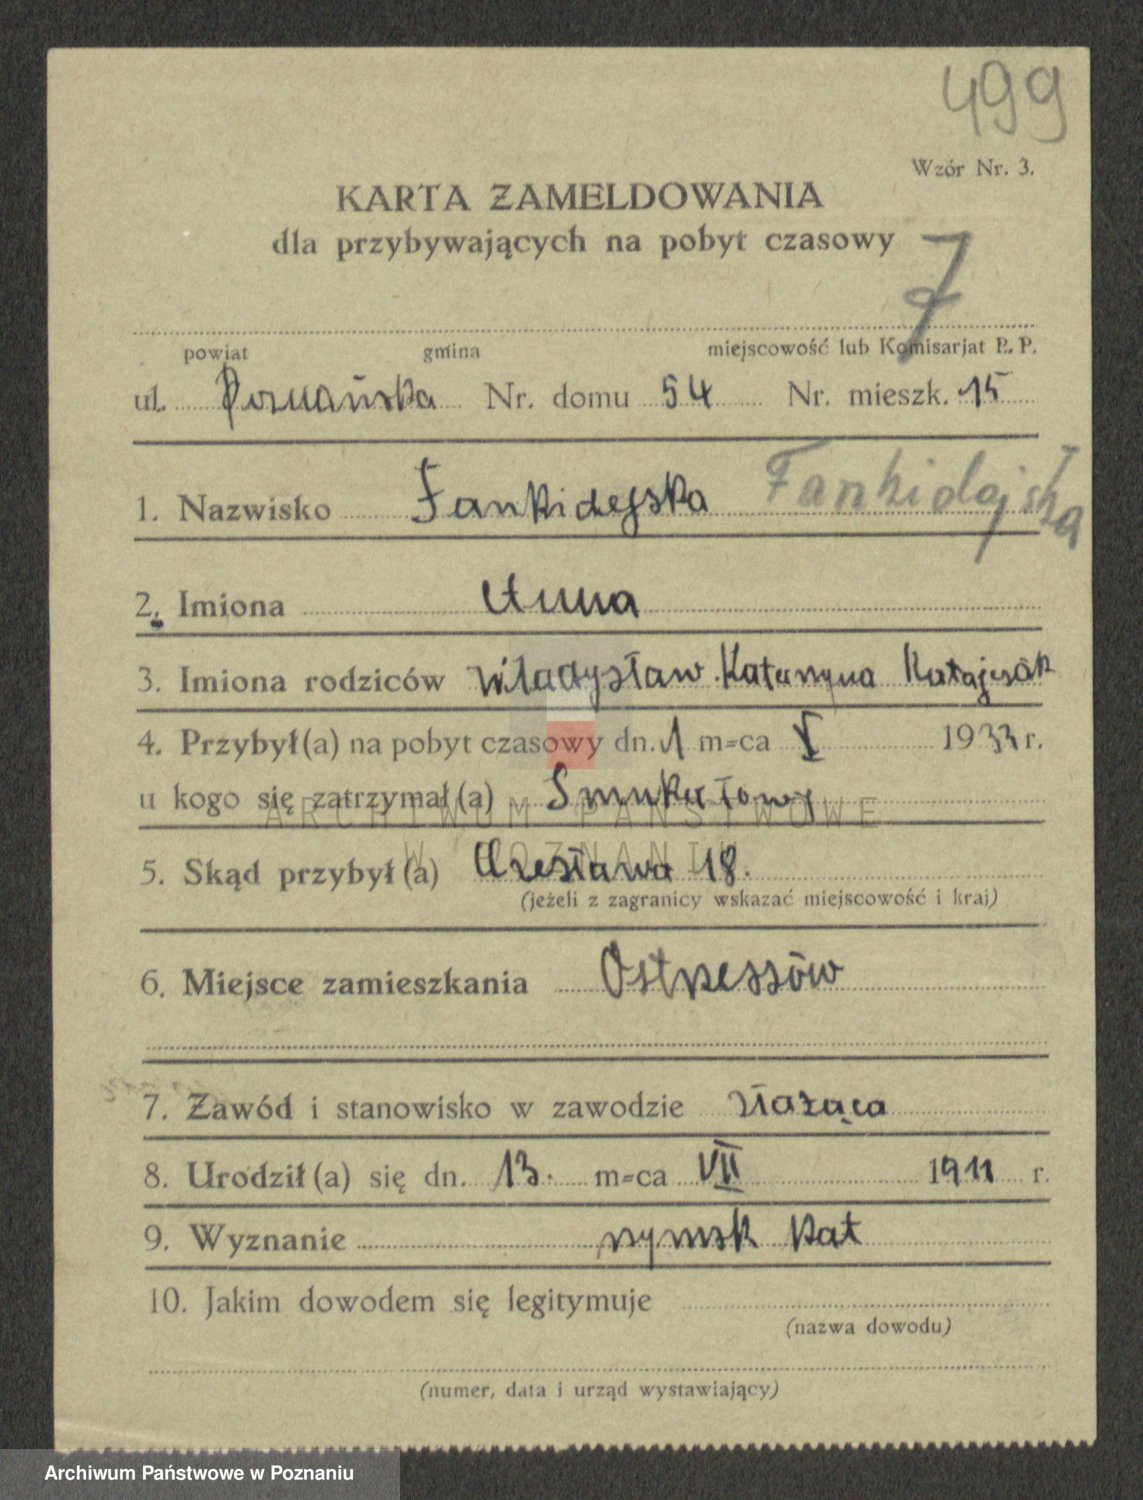 499
Wzór Nr. 3.
KARTA ZAMELDOWANIA
dla przybywających na pobyt czasowy
7
powiat gmina miejscowość lub Komisarjat P. P.
ul. Poznańska Nr. domu 54 Nr. mieszk. 15
1. Nazwisko Fankidejska Fankidejska
2. Imiona Anna
3. Imiona rodziców Władysław Katarzyna Ratajczak
4. Przybył(a) na pobyt czasowy dn. 1 m-ca X 1933 r.
u kogo się zatrzymał(a) Smukałowy
ARCHIWUM PAŃSTWOWE
W POZNANIU
5. Skąd przybył(a) Czesława 18.
(jeżeli z zagranicy wskazać miejscowość i kraj)
6. Miejsce zamieszkania Ostrzeszów
7. Zawód i stanowisko w zawodzie służąca
8. Urodził(a) się dn. 13. m-ca VII 1911 r.
9. Wyznanie rymsk kat
10. Jakim dowodem się legitymuje
(nazwa dowodu)
(numer, data i urząd wystawiający)
Archiwum Państwowe w Poznaniu